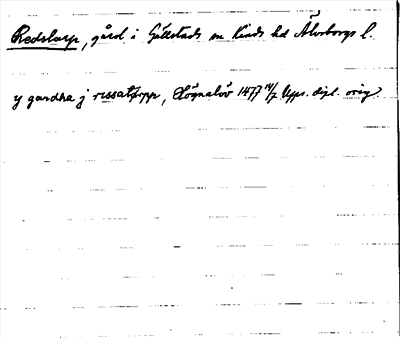 Redstorp, gård i Gällstads sn Kinds hd Älvsborgs l.
y gardha j rissatorpp, Högnalöv 1477 14/7 Upps. dipl. orig.